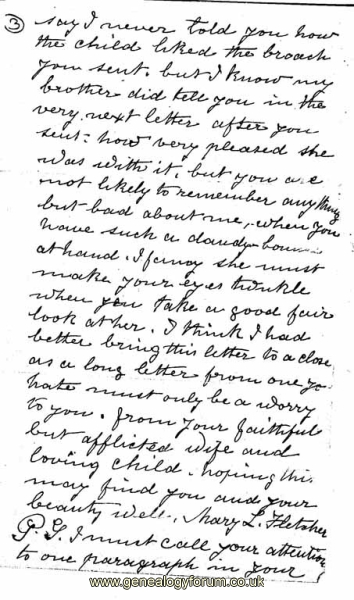 3
say I never told you how
the child liked the broach
you sent. but I know my
brother did tell you in the
very next letter after you
sent: how very pleased she
was with it, but you are
not likely to remember anything
but bad about me, when you
have such a dandy
at hand. I fancy she must
make your eyes twinkle
when you take a good fair
look at her. I think I had
better bring this letter to a close
as a long letter from one yo
hate must only be a worry
to you. from your faithful
but afflicted wife and
loving child. hoping this
may find you and your
beauty well. Mary L. Fletcher
P.S. I must call your attention
to one paragraph in your
www.genealogyforum.co.uk